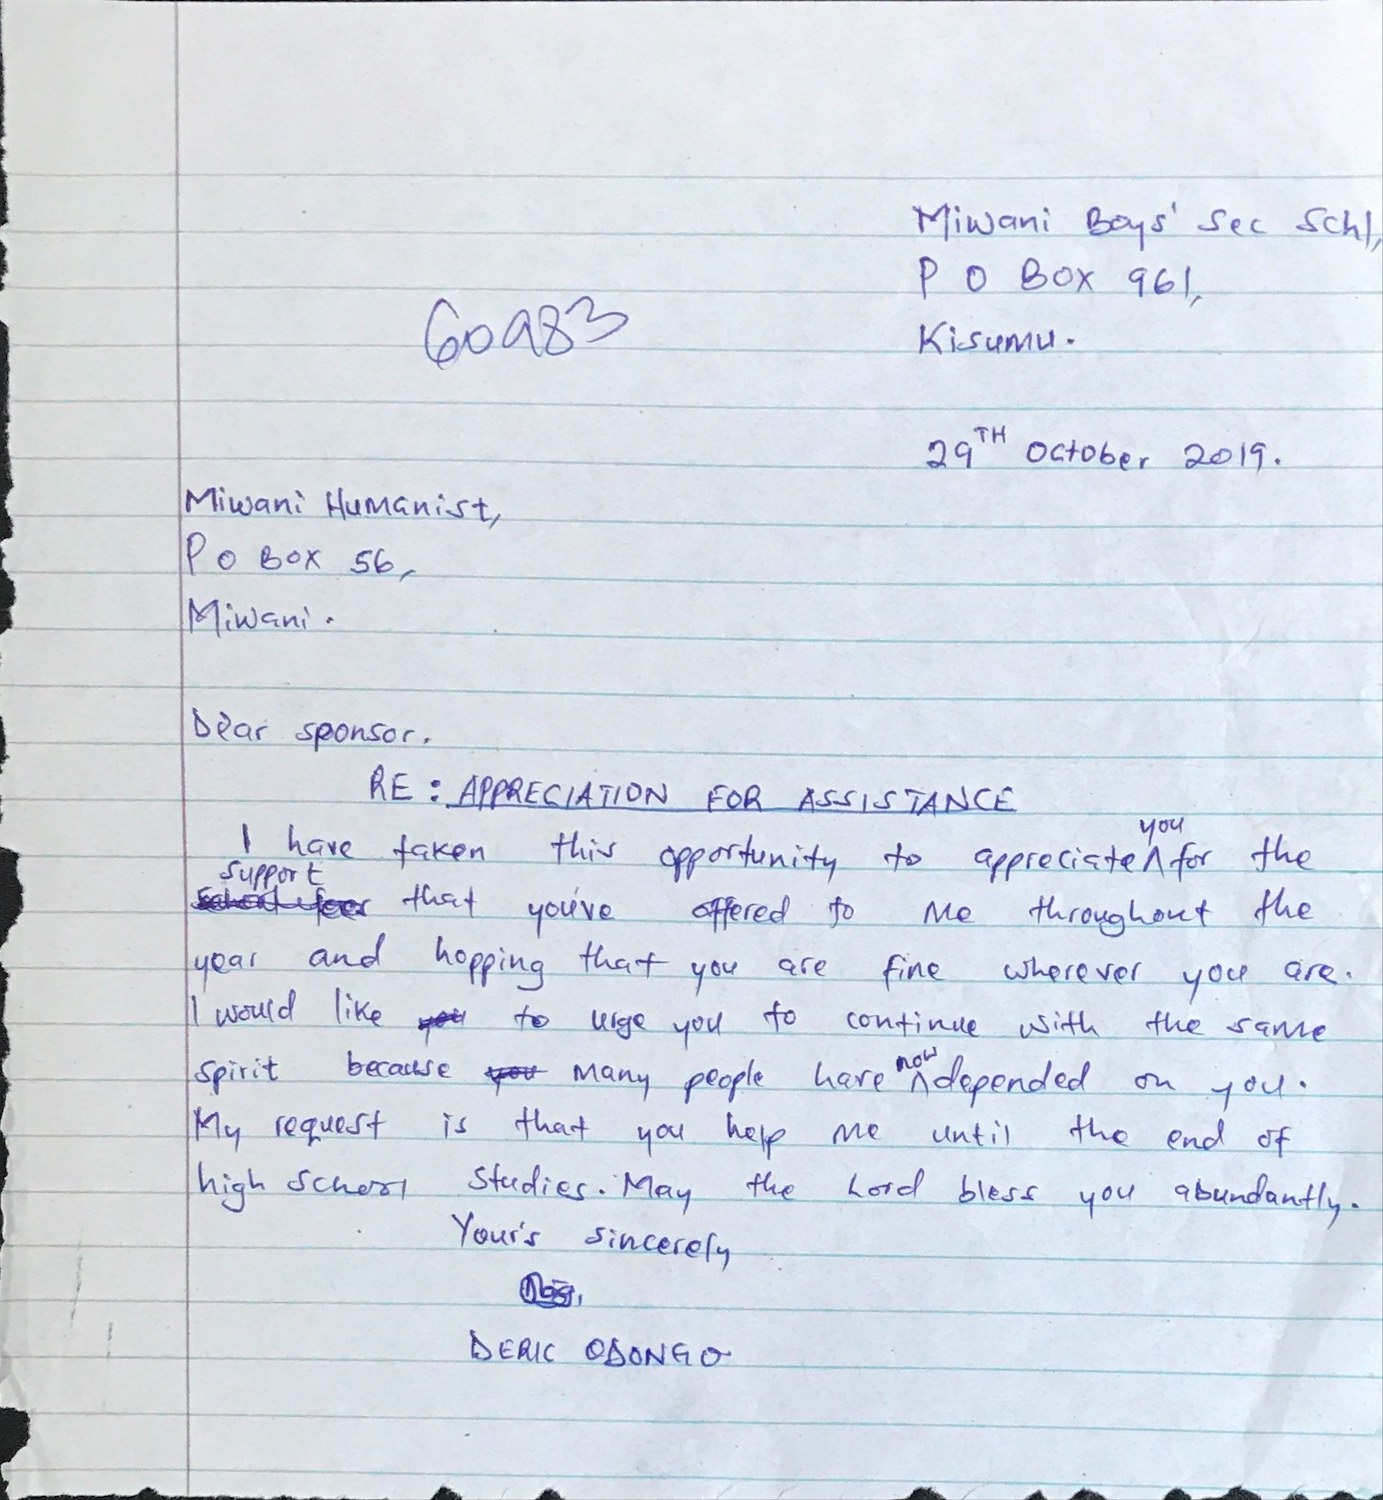 Miwani Boys' Sec Schl,
P O Box 961,
60983
Kisumu.
29TH October 2019.
Miwani Humanist,
P O Box 56,
Miwani.
Dear sponsor.
RE: APPRECIATION FOR ASSISTANCE
I have taken this opportunity to appreciate you for the
support
school fees that you've offered to me throughout the
year and hopping that you are fine wherever you are.
I would like you to urge you to continue with the same
spirit because you many people have now depended on you.
My request is that you help me until the end of
high school studies. May the Lord bless you abundantly.
Your's sincerely
DERIC ODONGO